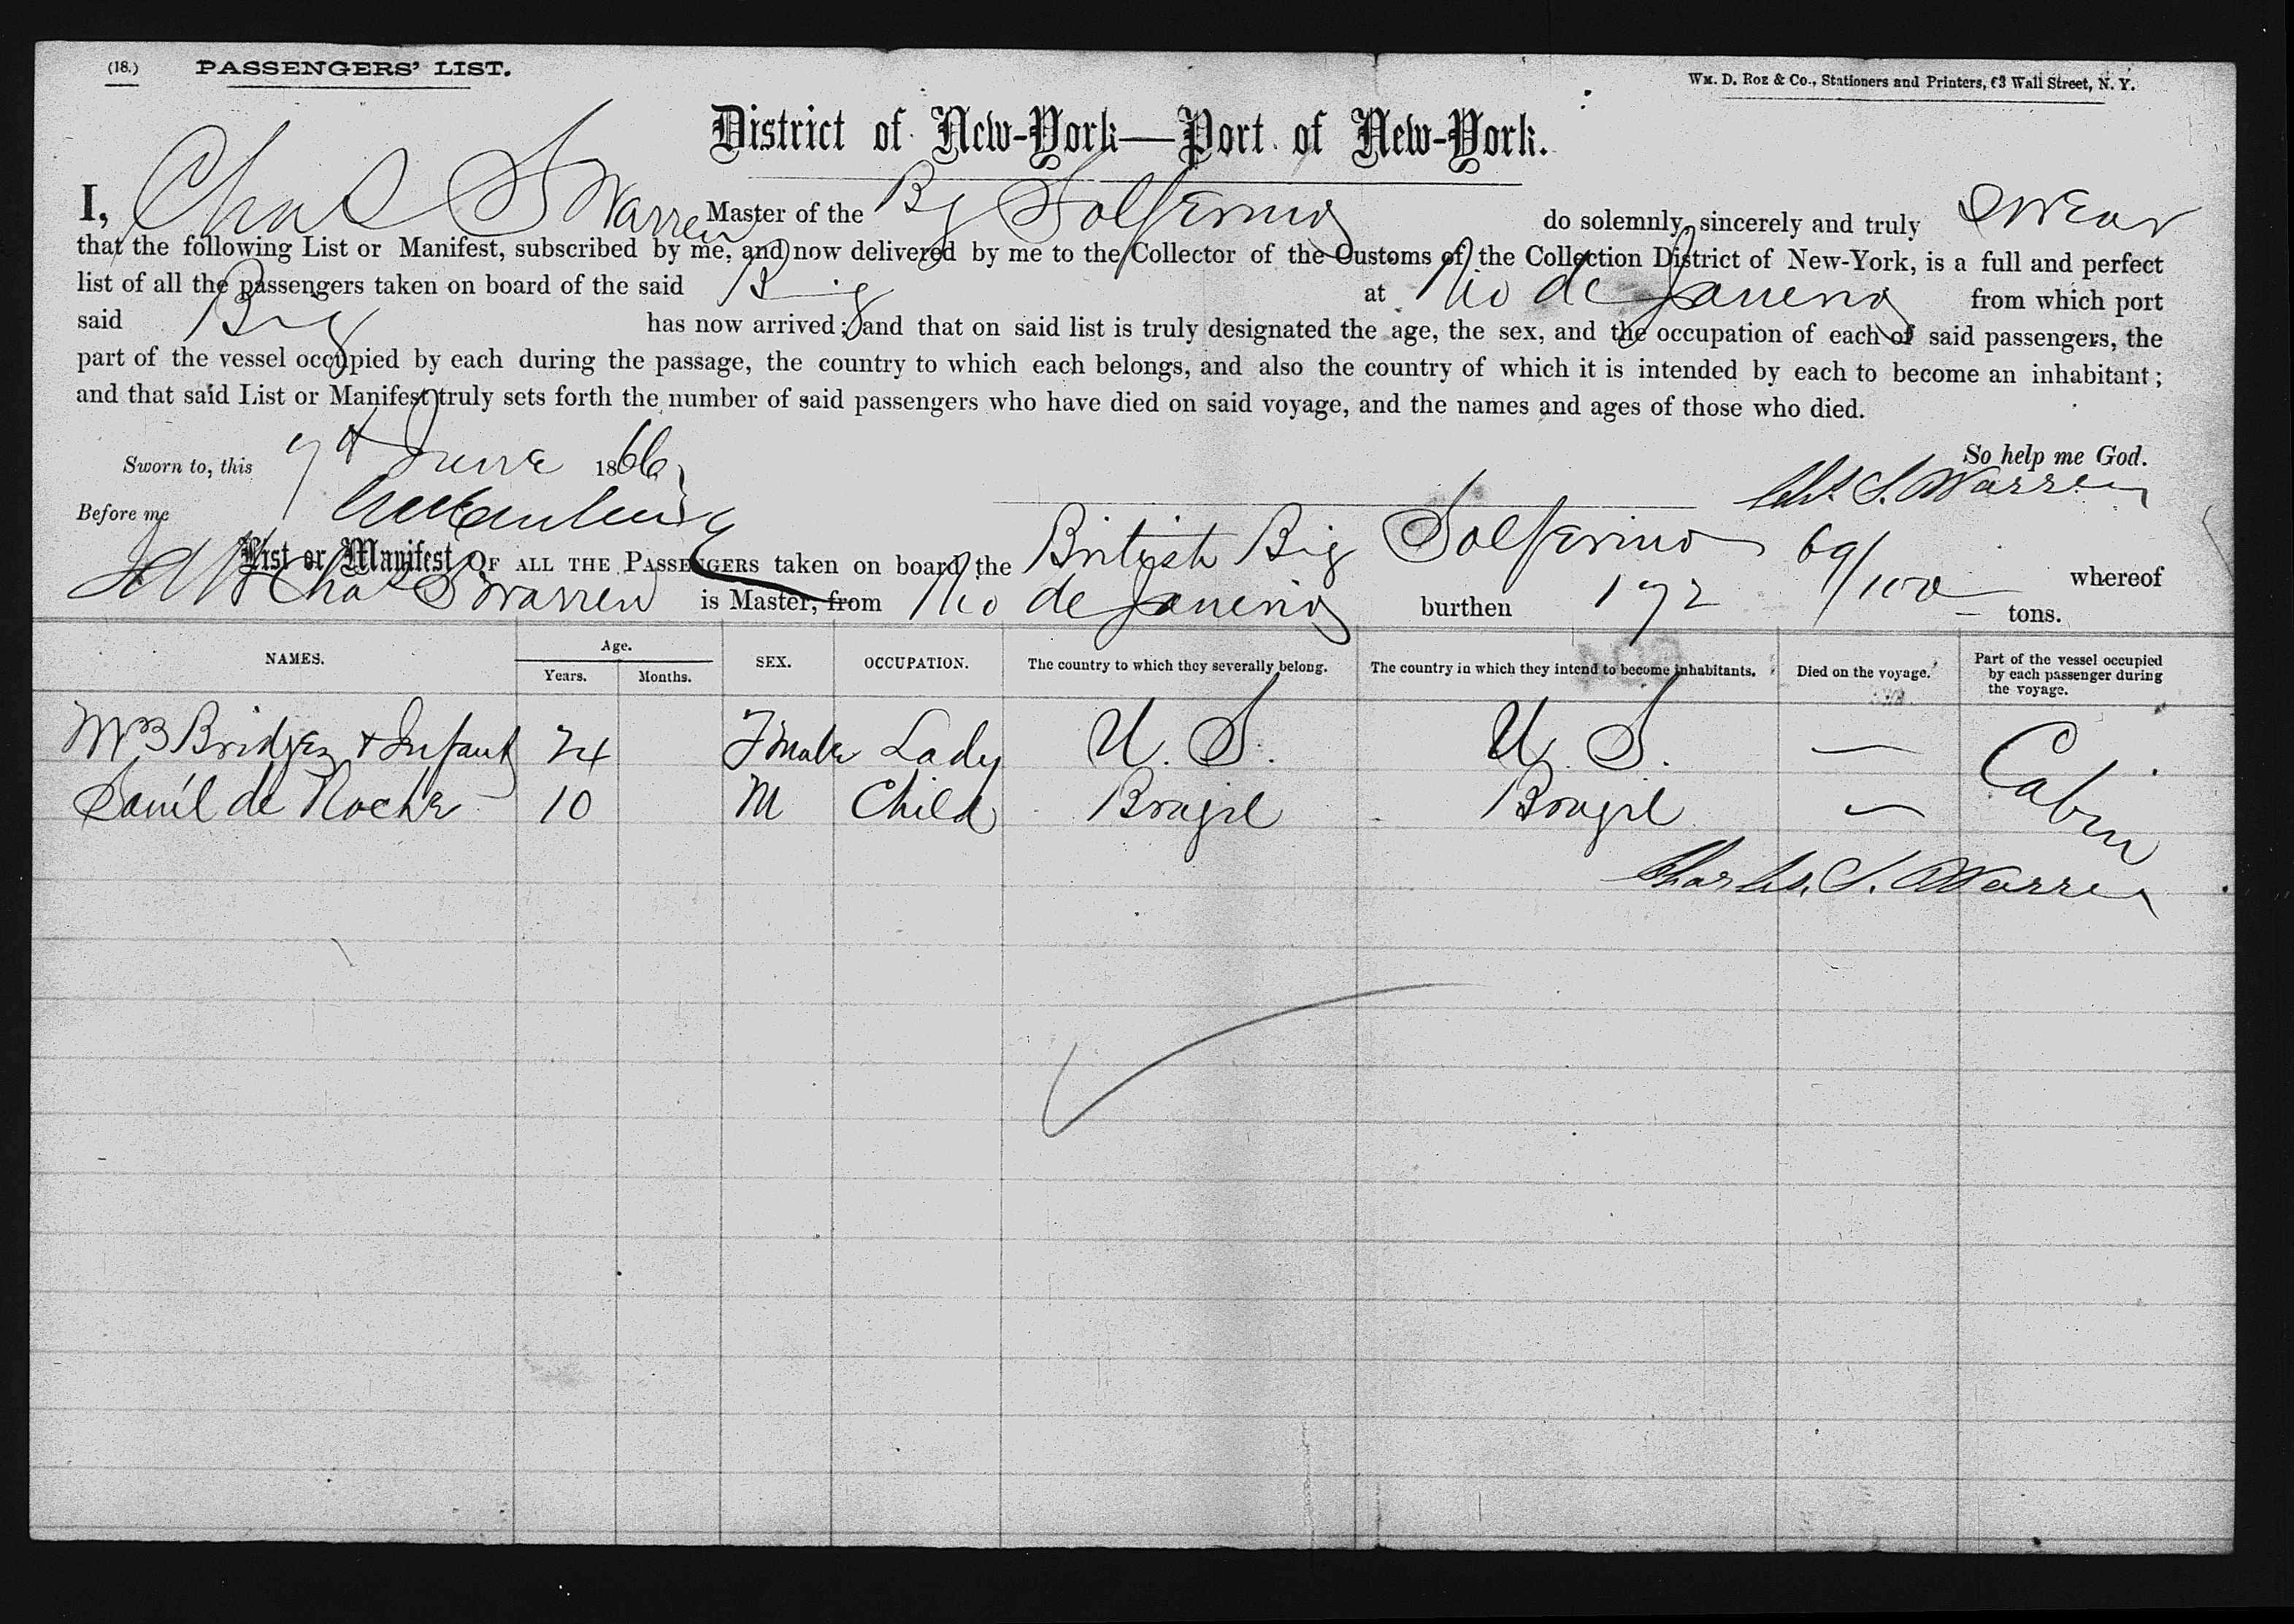 (18.) PASSENGERS' LIST.
WM. D. ROE & Co., Stationers and Printers, 63 Wall Street, N. Y.
District of New-York—Port of New-York.
I, Chas S Warren Master of the Bg Solferino do solemnly, sincerely and truly swear
that the following List or Manifest, subscribed by me, and now delivered by me to the Collector of the Customs of the Collection District of New-York, is a full and perfect
list of all the passengers taken on board of the said Brig at Rio de Janeiro from which port
said Brig has now arrived; and that on said list is truly designated the age, the sex, and the occupation of each of said passengers, the
part of the vessel occupied by each during the passage, the country to which each belongs, and also the country of which it is intended by each to become an inhabitant;
and that said List or Manifest truly sets forth the number of said passengers who have died on said voyage, and the names and ages of those who died.
So help me God.
Sworn to, this 7th June 1866
Chs. S. Warren
Before me
List or Manifest OF ALL THE PASSENGERS taken on board the British Big Solferino 69/100 whereof
Chas S Warren is Master, from Rio de Janeiro burthen 172 tons.
NAMES. Age. Years. Months. SEX. OCCUPATION. The country to which they severally belong. The country in which they intend to become inhabitants. Died on the voyage. Part of the vessel occupied by each passenger during the voyage.
Mrs Bridges & Infant 24 Fmale Lady U. S. U. S. — Cabin
de Roche 10 M Child Brazil Brazil —
Charles. S. Warren